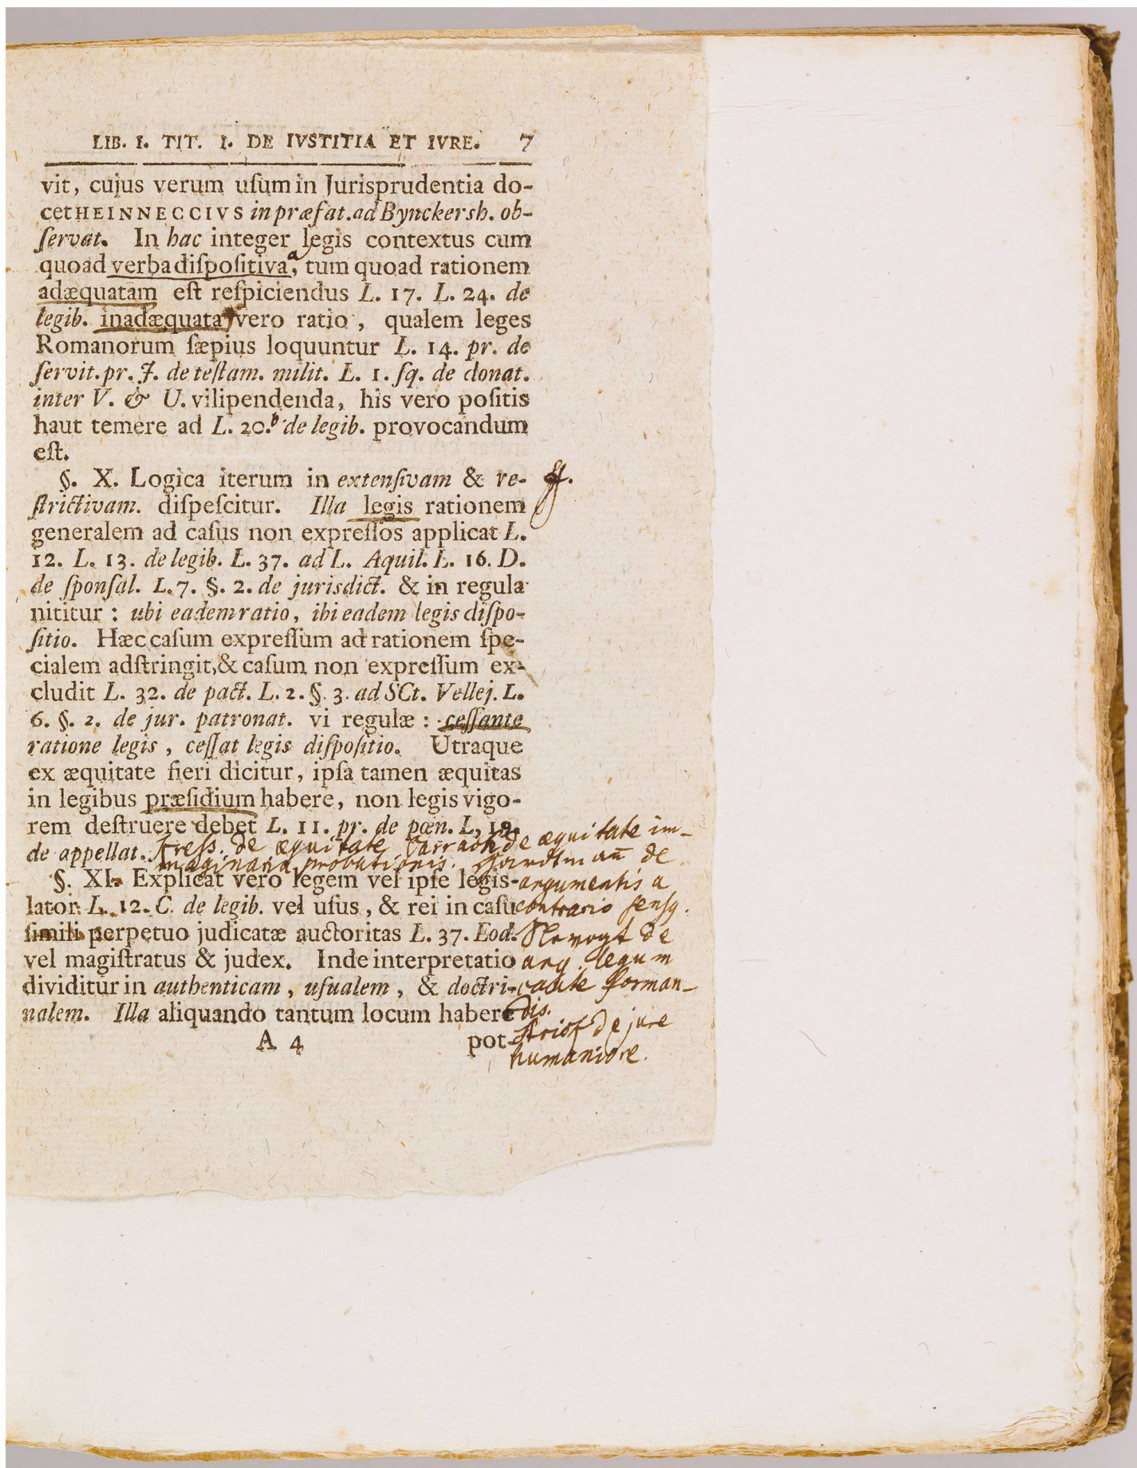 LIB. I. TIT. I. DE IVSTITIA ET IVRE. 7
vit, cujus verum uſum in Jurisprudentia do-
cet HEINNECCIVS in præfat. ad Bynckersh. ob-
ſervat. In hac integer legis contextus cum
quoad verba diſpoſitiva, a tum quoad rationem
adæquatam eſt reſpiciendus L. 17. L. 24. de
legib. inadæquata vero ratio, qualem leges
Romanorum ſæpius loquuntur L. 14. pr. de
ſervit. pr. J. de teſtam. milit. L. 1. ſq. de donat.
inter V. & U. vilipendenda, his vero poſitis
haut temere ad L. 20. b de legib. provocandum
eſt.
§. X. Logica iterum in extenſivam & re-
ſtrictivam. diſpeſcitur. Illa legis rationem
generalem ad caſus non expreſſos applicat L.
12. L. 13. de legib. L. 37. ad L. Aquil. L. 16. D.
de ſponſal. L. 7. §. 2. de jurisdict. & in regula
nititur : ubi eadem ratio, ibi eadem legis diſpo-
ſitio. Hæc caſum expreſſum ad rationem ſpe-
cialem adſtringit, & caſum non expreſſum ex-
cludit L. 32. de pact. L. 2. §. 3. ad SCt. Vellej. L.
6. §. 2. de jur. patronat. vi regulæ : ceſſante
ratione legis, ceſſat legis diſpoſitio. Utraque
ex æquitate fieri dicitur, ipſa tamen æquitas
in legibus præſidium habere, non legis vigo-
rem deſtruere debet L. 11. pr. de pœn. L. 19.
de appellat.
de æquitate
de æquitate im-
maginaria probationis. de
argumentis a
contrario ſenſ.
de
arg. legum
caute forman-
dis.
de jure
humaniore.
§. XI. Explicat vero legem vel ipſe legis-
lator L. 12. C. de legib. vel uſus, & rei in caſu
ſimili perpetuo judicatæ auctoritas L. 37. Eod.
vel magiſtratus & judex. Inde interpretatio
dividitur in authenticam, uſualem, & doctri-
nalem. Illa aliquando tantum locum habere
A 4 pot-